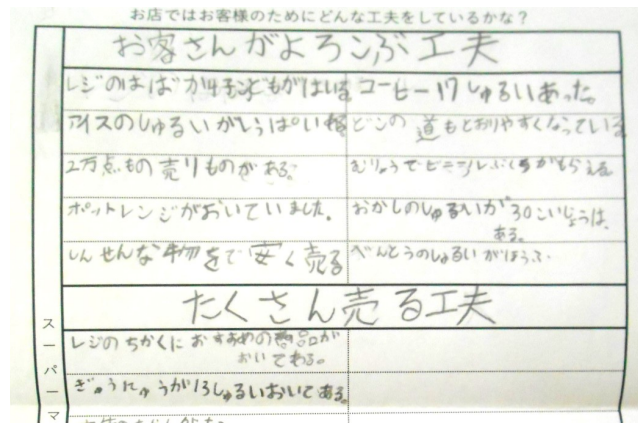 お店ではお客様のためにどんな工夫をしているかな？
お客さんがよろこぶ工夫
レジのはばが子どもがはいる
コーヒー17しゅるいあった。
アイスのしゅるいがいっぱい
どこの道もとおりやすくなっている
2万点もの売りものがある。
むりょうでビニールぶくろがもらえる
ポットレンジがおいていました。
おかしのしゅるいが30こいじょうは、
ある。
しんせんな物を安く売る
べんとうのしゅるいがほうふ
たくさん売る工夫
レジのちかくにおすすめの商品が
おいてある。
ぎゅうにゅうが13しゅるいおいてある。
スーパーマ